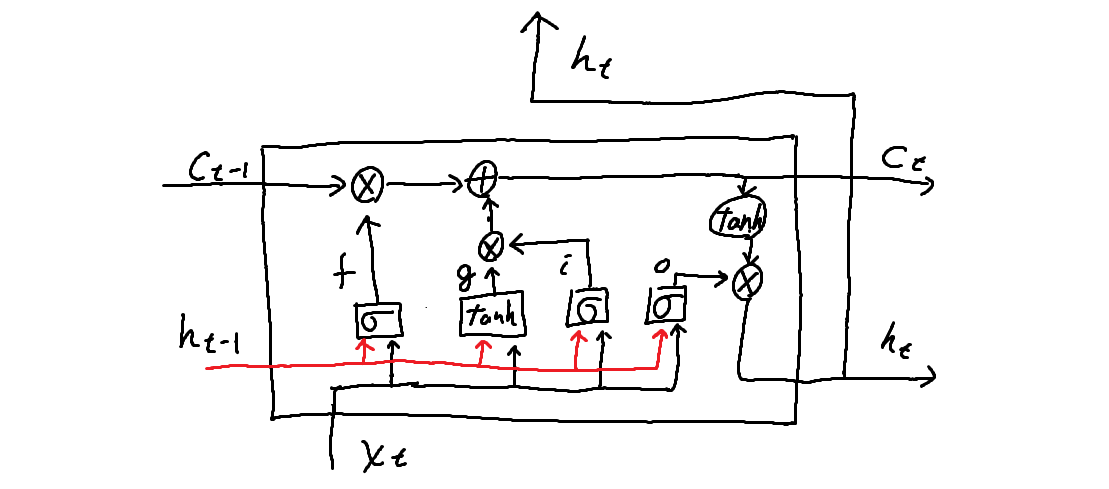 hₜ
Cₜ₋₁
Cₜ
tanh
f
g
i
o
σ
tanh
σ
σ
hₜ₋₁
hₜ
xₜ